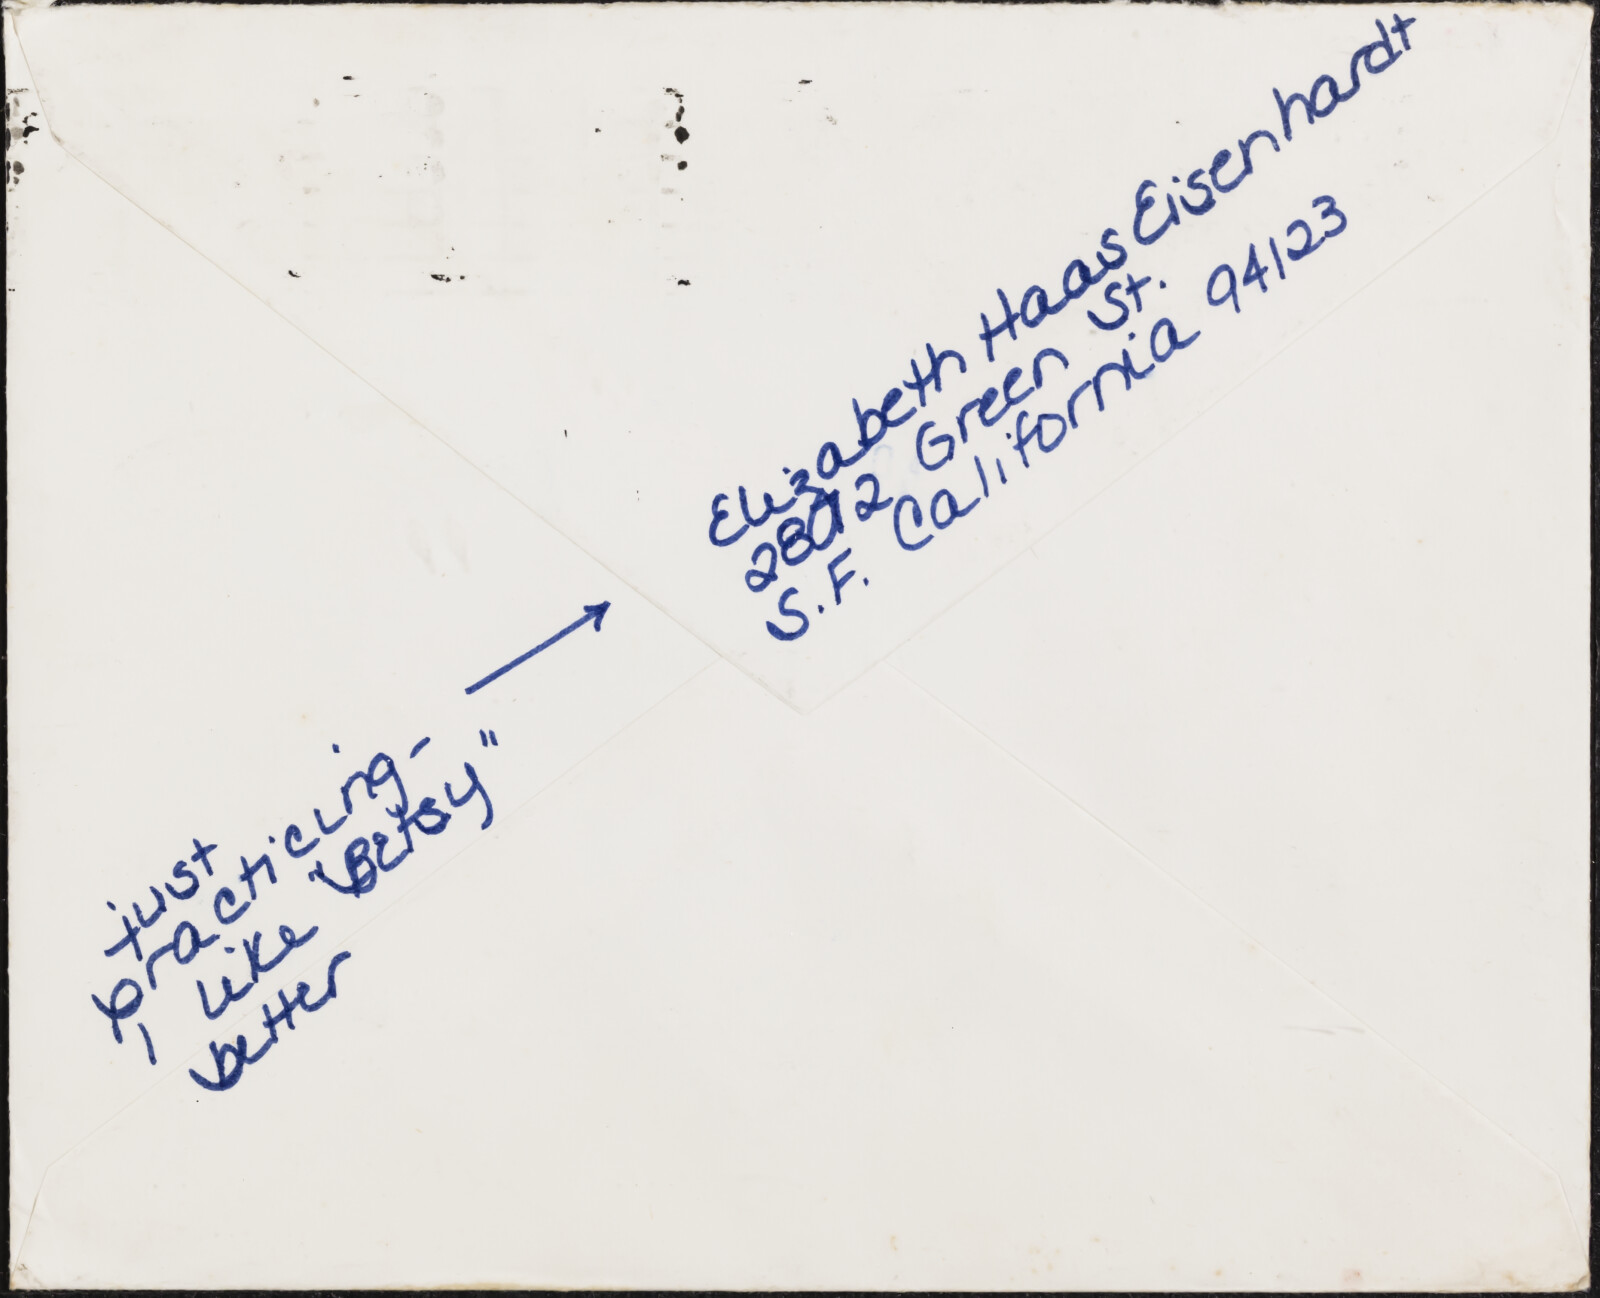 Elizabeth Haas Eisenhardt
Green St.
S.F. California 94123
just
practicing-
I like "Betsy"
better